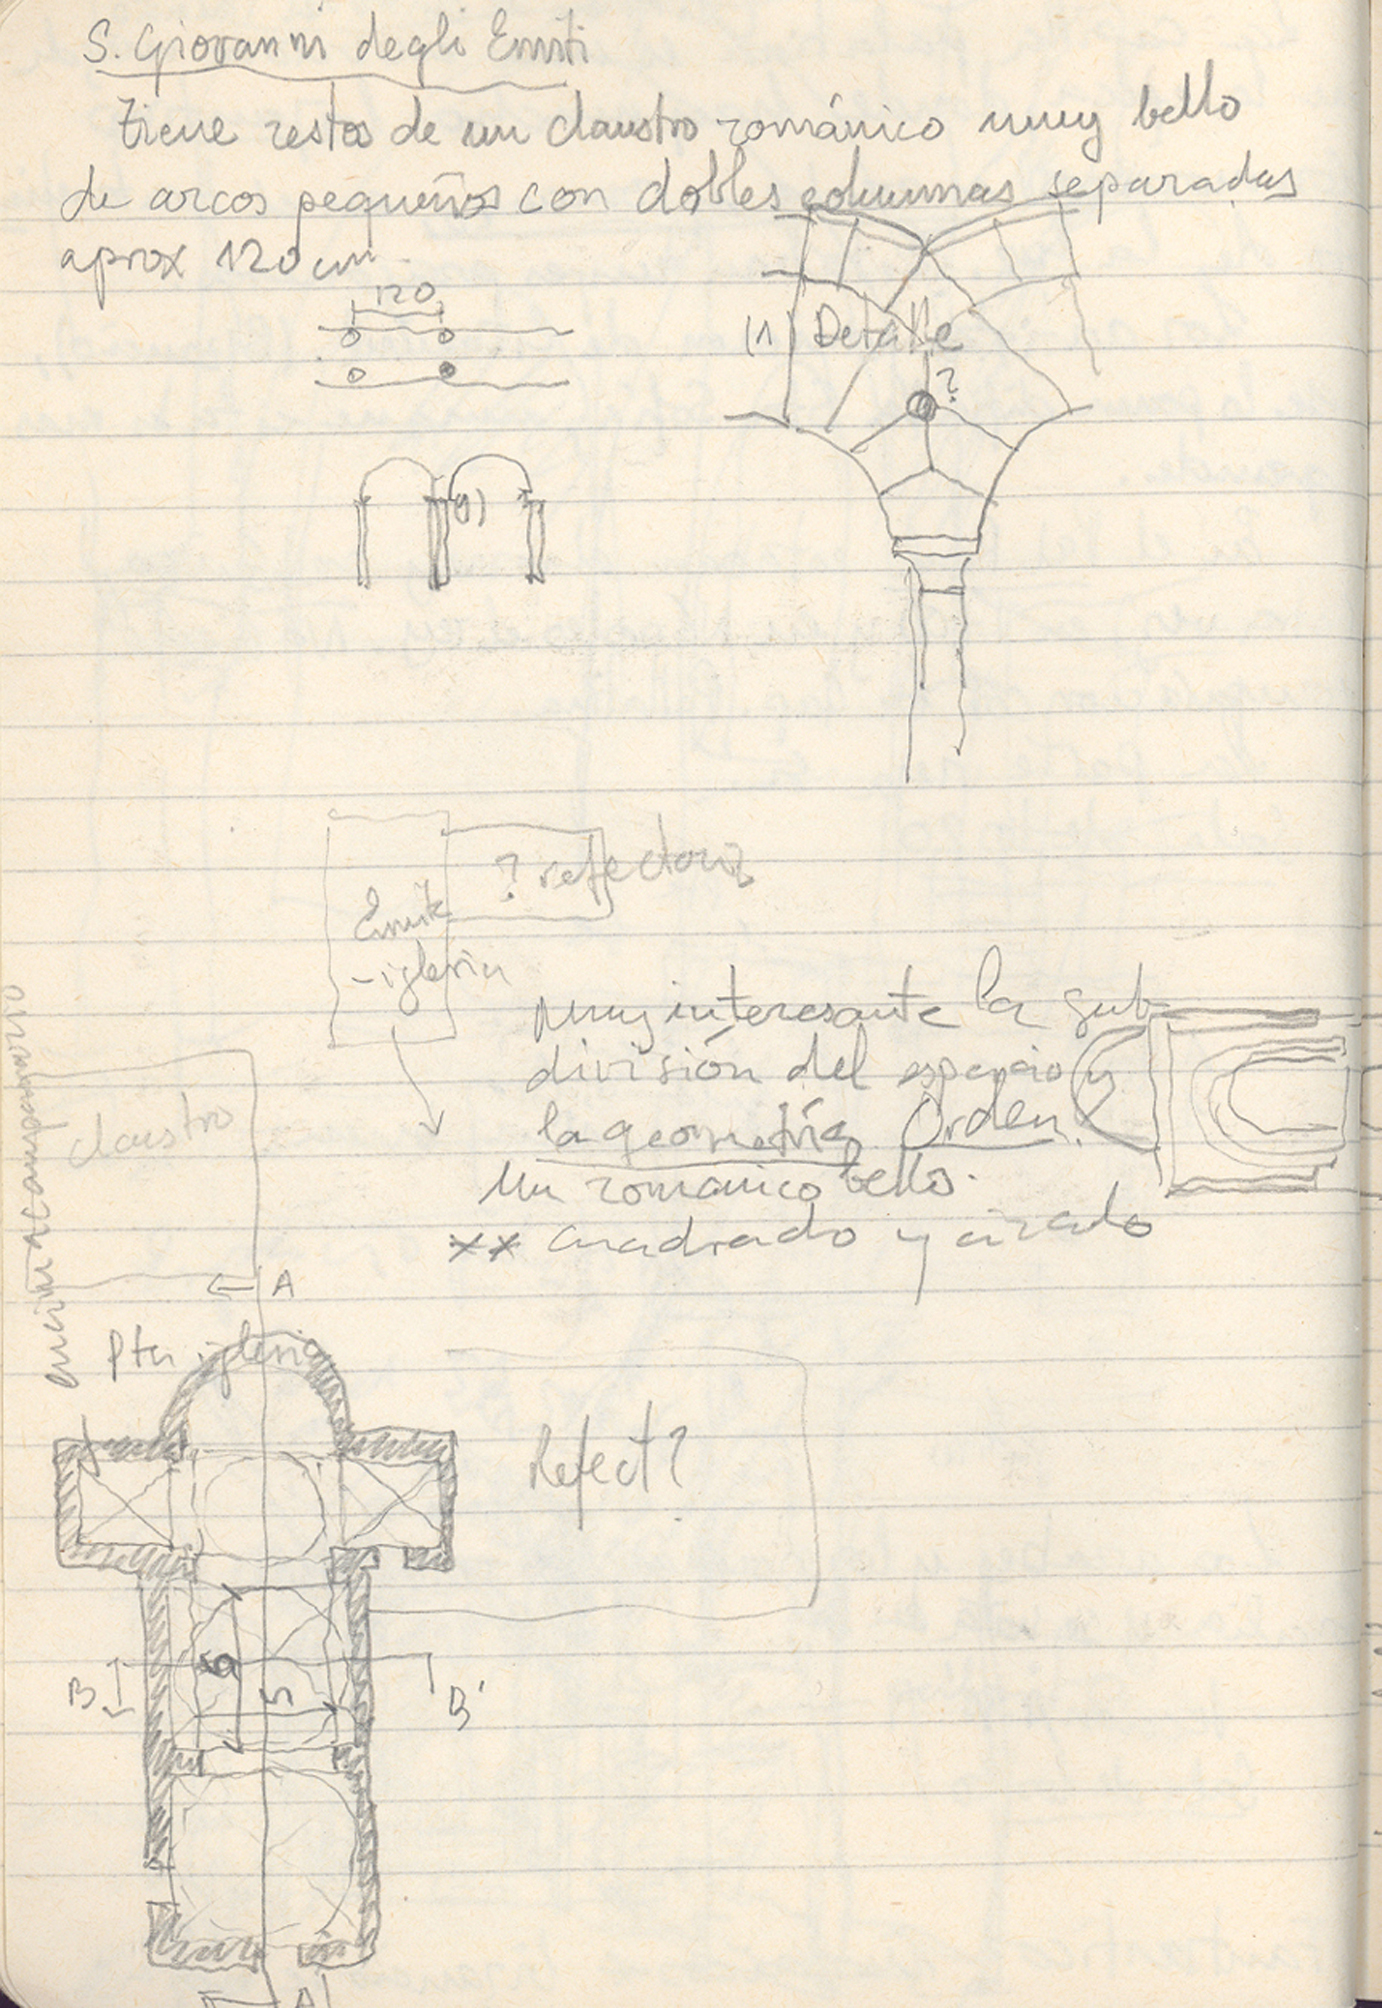 S. Giovanni degli Emiti
Tiene restos de un claustro románico muy bello
de arcos pequeños con dobles columnas separadas
aprox 120 cm
120
(1) Detalle
?
1)
? refectorio
Emite
-iglesia
Muy interesante la sub-
división del espacio y
la geometría. Orden.
Un romanico bello.
** cuadrado y círculo
claustro
encima campanario
A
Pta iglesia
Refect?
B
B'
6
5
A'